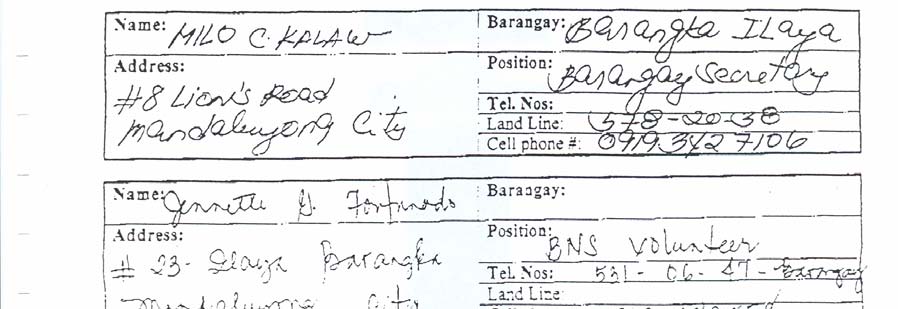 Name: MILO C. KALAW
Barangay: Barangka ILaya
Address:
#8 Lion's Road
Mandaluyong City
Position: Barangay Secretary
Tel. Nos:
Land Line: 578-20-38
Cell phone #: 0919 3427106
Name: Jennette G.
Barangay:
Address:
# 23- Ilaya Barangka
Mandaluyong City
Position: BNS Volunteer
Tel. Nos: 531-06-47-Barangay
Land Line